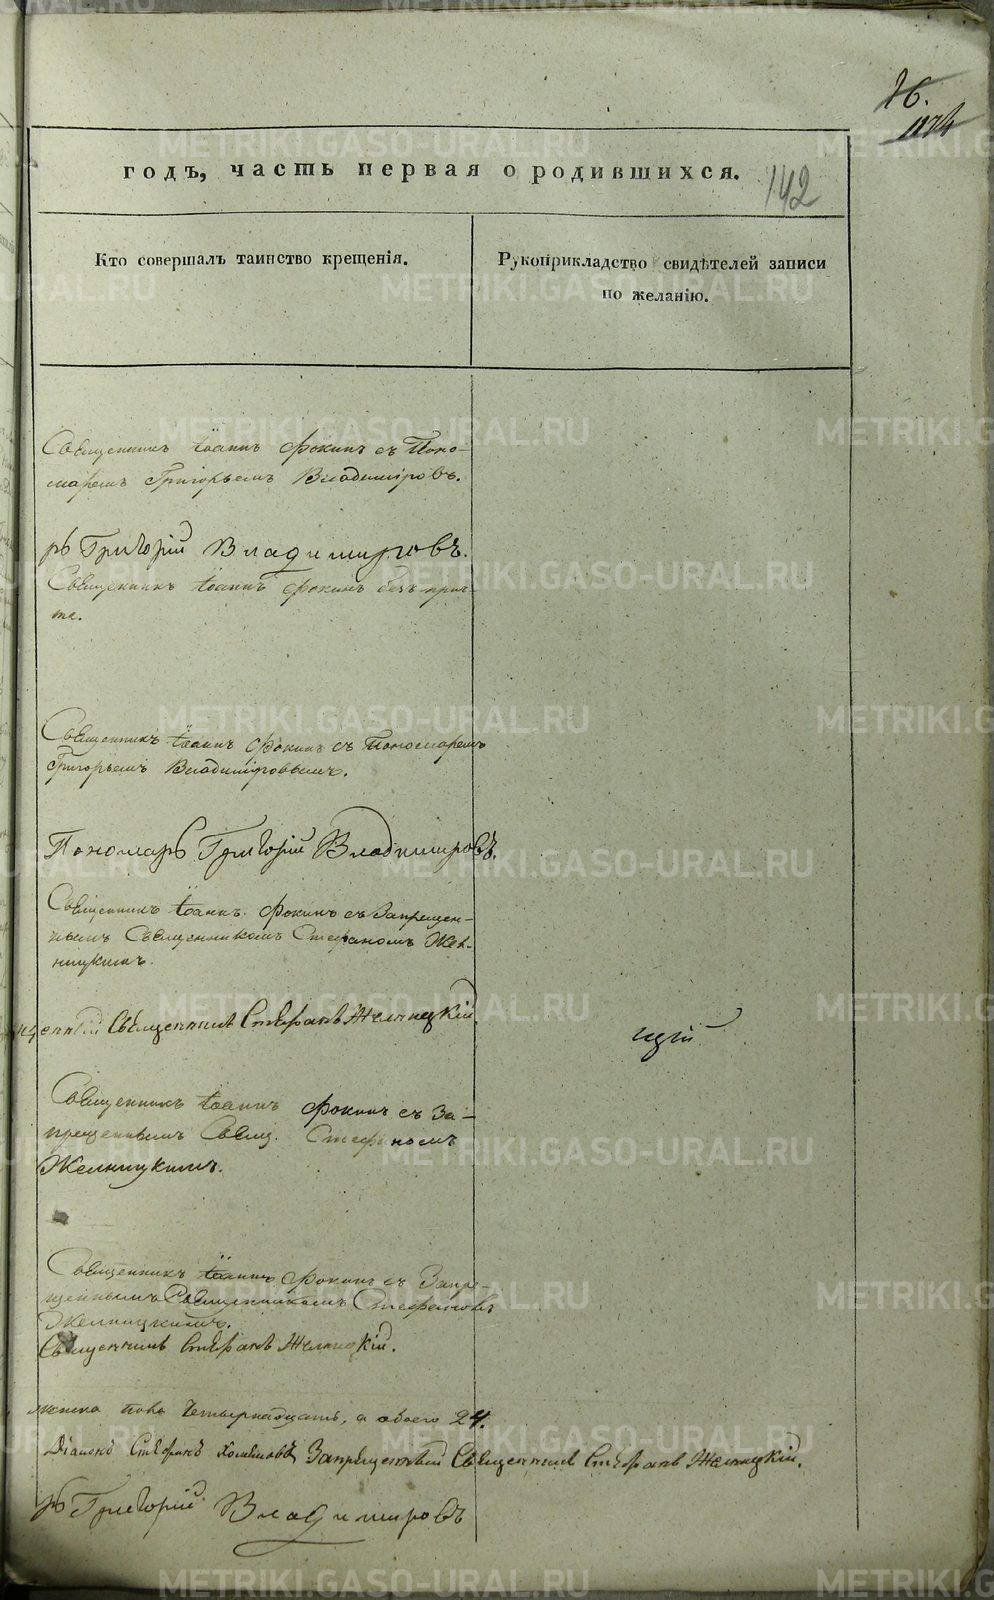 76.
1174
годъ, часть первая о родившихся.
142
Кто совершалъ таинство крещенія.
Рукоприкладство свидѣтелей записи
по желанію.
Священникъ Іоаннъ Фокинъ съ Поно-
маремъ Григорьемъ Владиміровъ.
рь Григорій Владимировъ.
Священникъ Іоаннъ Фокинъ безъ прич-
та.
Священникъ Іоаннъ Фокинъ съ Пономаремъ
Григорьемъ Владиміровымъ.
Пономарь Григорій Владимировъ.
Священникъ Іоаннъ Фокинъ съ Запрещен-
нымъ Священникомъ Стефаномъ Жел-
ницкимъ.
щенный Священникъ Стефанъ Желницкій
цкій
Священникъ Іоаннъ Фокинъ съ За-
прещеннымъ Свящ. Стефаномъ
Желницкимъ.
Священникъ Іоаннъ Фокинъ съ Запре-
щеннымъ Священникомъ Стефаномъ
Желницкимъ.
Священникъ Стефанъ Желницкій.
женска пола Четырнадцать, а обоего 24.
Діаконъ Стефанъ Запрещенный Священникъ Стефанъ Желницкій.
рь Григорій Владимировъ
METRIKI.GASO-URAL.RU